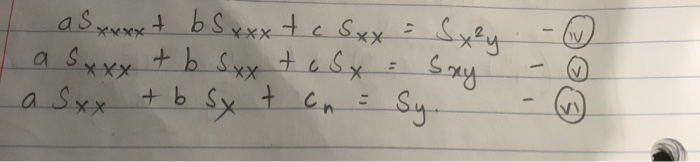 a Sxxxx + b Sxxx + c Sxx = Sx²y - (iv)
a Sxxx + b Sxx + c Sx = Sxy - (v)
a Sxx + b Sx + cn = Sy. - (vi)